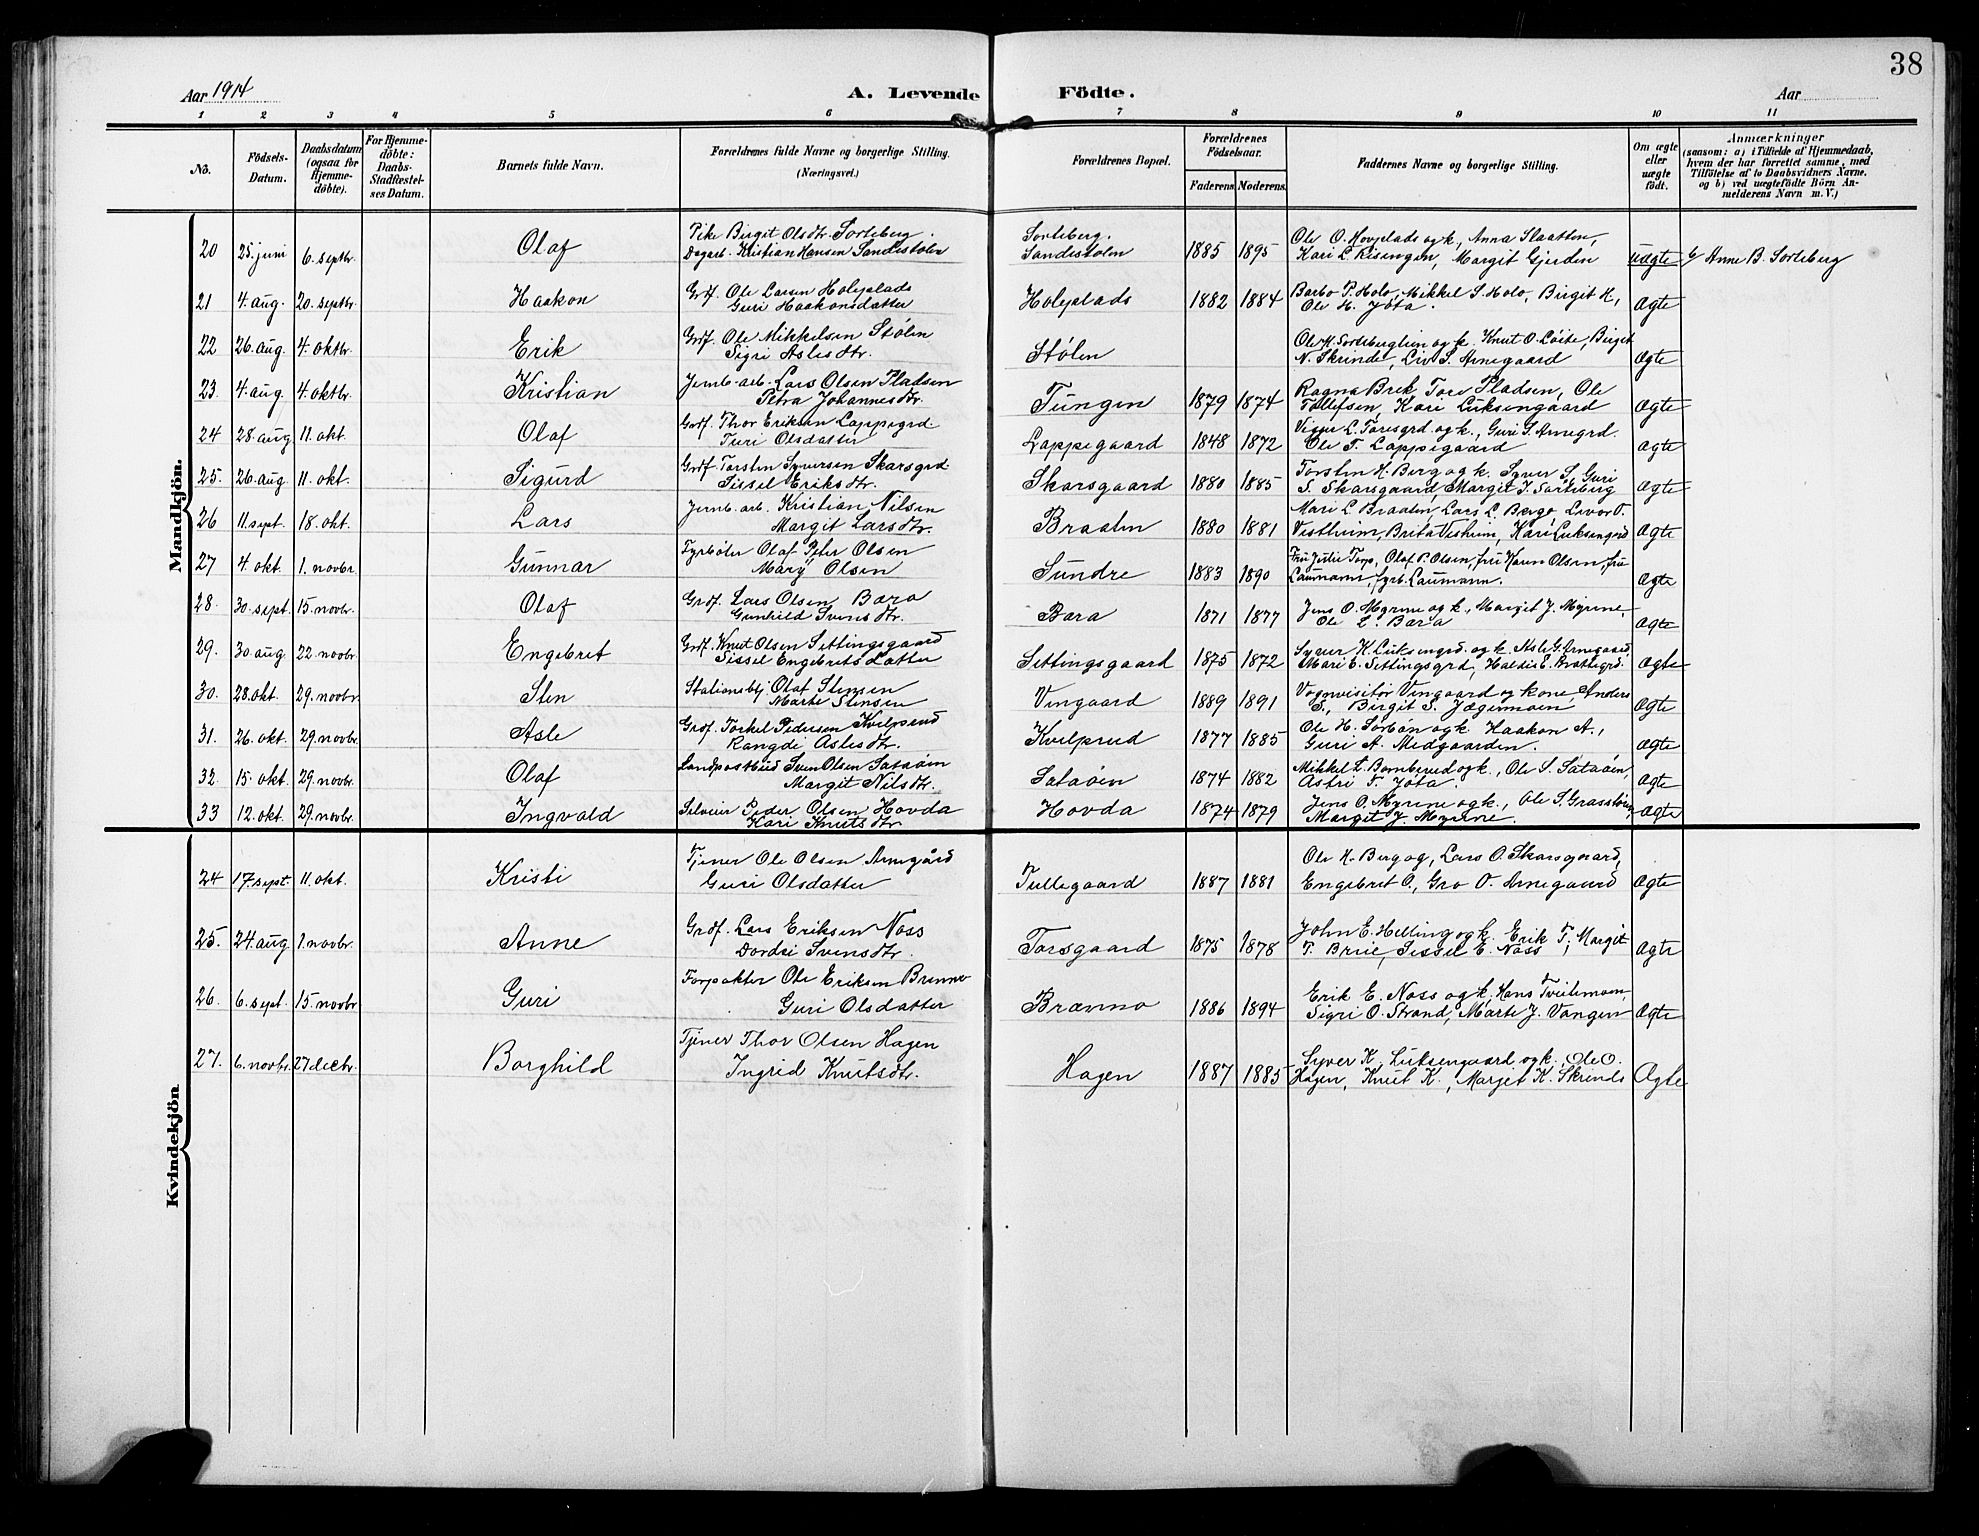 38
Aar 1914
A. Levende Födte.
Aar
1 2 3 4 5 6 7 8 9 10 11
No.
Födsels-Datum.
Daabsdatum (ogsaa for Hjemmedöbte).
For Hjemmedöbte: Daabs-Stadfæstelses Datum.
Barnets fulde Navn.
Forældrenes fulde Navne og borgerlige Stilling. (Næringsvei.)
Forældrenes Bopæl.
Forældrenes Födselsaar.
Faderens. Moderens.
Faddernes Navne og borgerlige Stilling.
Om ægte eller uægte födt.
Anmærkninger
(saasom: a) i Tilfælde af Hjemmedaab, hvem der har forrettet samme, med Tilföielse af to Daabsvidners Navne, og b) ved uægtefödte Börn Anmelderens Navn m. V.)
Mandkjön.
20 25. juni 6. septbr. Olaf Pike Birgit Olsdtr. Sorteberg. Sorteberg. 1885 1895 Ole O. Hovplads og k., Anna Slaatten, uægte b/ Anne B. Sorteberg
Dagarb. Kristian Hansen Sandestolen Sandestolen Kari L. Risengen, Margit Gjerden
21 4. aug. 20. septbr. Haakon Grdf. Ole Larsen Holeplads Holeplads 1882 1884 Barbo P. Holo, Mikkel S. Holo, Birgit H., Ægte
Guri Haakonsdatter Ole H. Jøta.
22 26. aug. 4. oktbr. Erik Grdf. Ole Mikkelsen Stølen Stølen Ole H. Sorteberglien og k. Knut O. Løite, Birgit Ægte
Sigri Aslesdtr. N. Skrinde, Liv S. Arnegaard
23 4. aug. 4. oktbr. Kristian Jernb.-arb. Lars Olsen Pladsen Tungen 1879 1874 Ragna Brek Tore Pladsen, Ole Ægte
Petra Johannesdtr. Tollefsen, Kari Luksengaard
24 28. aug. 11. okt. Olaf Grdf. Thor Eriksen Lappegrd. Lappegaard 1848 1872 L. Toresgrd. og k., Guri S. Arnegrd. Ægte
Turi Olsdatter Ole T. Lappegaard
25. 26. aug. 11. okt. Sigurd Grdf. Torsten Syversen Skarsgrd. Skarsgaard 1880 1885 Torsten H. Berg og k. Syver S., Guri Ægte
Sissel Eriksdtr. S. Skarsgaard, Margit J. Sorteberg
26 11. sept. 18. okt. Lars Jernb. arb. Kristian Nilsen Braaten 1880 1881 Mari L. Braaten, Lars L. Bergo Levor O. Ægte
Margit Larsdtr. Vestheim, Brita Vesheim, Kari Luksengrd
27 4. okt. 1. novbr. Gunnar Fyrbøter Olaf Peter Olsen Sundre 1883 1890 Fru Julie Torp, Olaf P. Olsen, fru Karen Olsen, fru Ægte
Mary Olsen Laumann, fyrb. Laumann.
28. 30. sept. 15. novbr. Olaf Grdf. Lars Olsen Bara Bara 1871 1877 Jens O. Myrene og k., Margit J. Myrene, Ægte
Gunhild Svensdtr. Ole L. Bara
29. 30 aug. 22. novbr. Engebret Grdf. Knut Olsen Settingsgaard Settingsgaard 1875 1872 Syver K. Luksengrd. og k. Asle G. Arnegaard, Ægte
Sissel Engebretsdatter Mari E. Settingsgrd, Haldis E. Brattegrd.
30. 28. okt. 29. novbr. Sten Stationsbtj. Olaf Stensen Vengaard 1889 1891 Vognvisitør Vengaard og kone Anders Ægte
Marte Stensen S., Birgit S. Jægermoen
31. 26. okt. 29. novbr. Asle Grdf. Torkel Pedersen Kvelprud Kvelprud 1877 1885 Ole H. Sorbøn og k. Haakon A., Ægte
Rangdi Aslesdtr. Guri A. Medgaarden.
32. 15. okt. 29. novbr. Olaf Landpostbud Sven Olsen Sataøen Sataøen 1874 1882 Mikkel T. Bomberud og k., Ole S. Sataøen, Ægte
Margit Nilsdtr. Astri T. Jøta.
33 12. okt. 29. novbr. Ingvald Selveier Peder Olsen Hovda Hovda 1874 1879 Jens O. Myrene og k., Ole S. Grasstøen, Ægte
Kari Knutsdtr. Margit J. Myrene.
Kvindekjön
24 17. sept. 11. okt. Kristi Tjener Ole Olsen Arnegård Tullegaard 1887 1881 Ole H. Berg og, Lars O. Skarsgaard, Ægte
Guri Olsdatter Engebret O., Gro O. Arnegaard
25. 24. aug. 1. novbr. Anne Grdf. Lars Eriksen Noss Torsgaard 1875 1878 John E. Helling og k. Erik T., Margit Ægte
Dordei Svensdtr. T. Brue, Sissel E. Noss
26. 6. sept. 15. novbr. Guri Forpakter Ole Eriksen Brenno Brænno 1886 1894 Erik E. Noss og k. Hans Tveitemoen, Ægte
Guri Olsdatter Sigri O. Strand, Marte J. Vangen
27. 6. novbr. 27 decbr. Borghild Tjener Thor Olsen Hagen Hagen 1887 1885 Syver K. Luksengaard og k. Ole O. Ægte
Ingrid Knutsdtr. Hagen, Knut K., Margit K. Skrinde